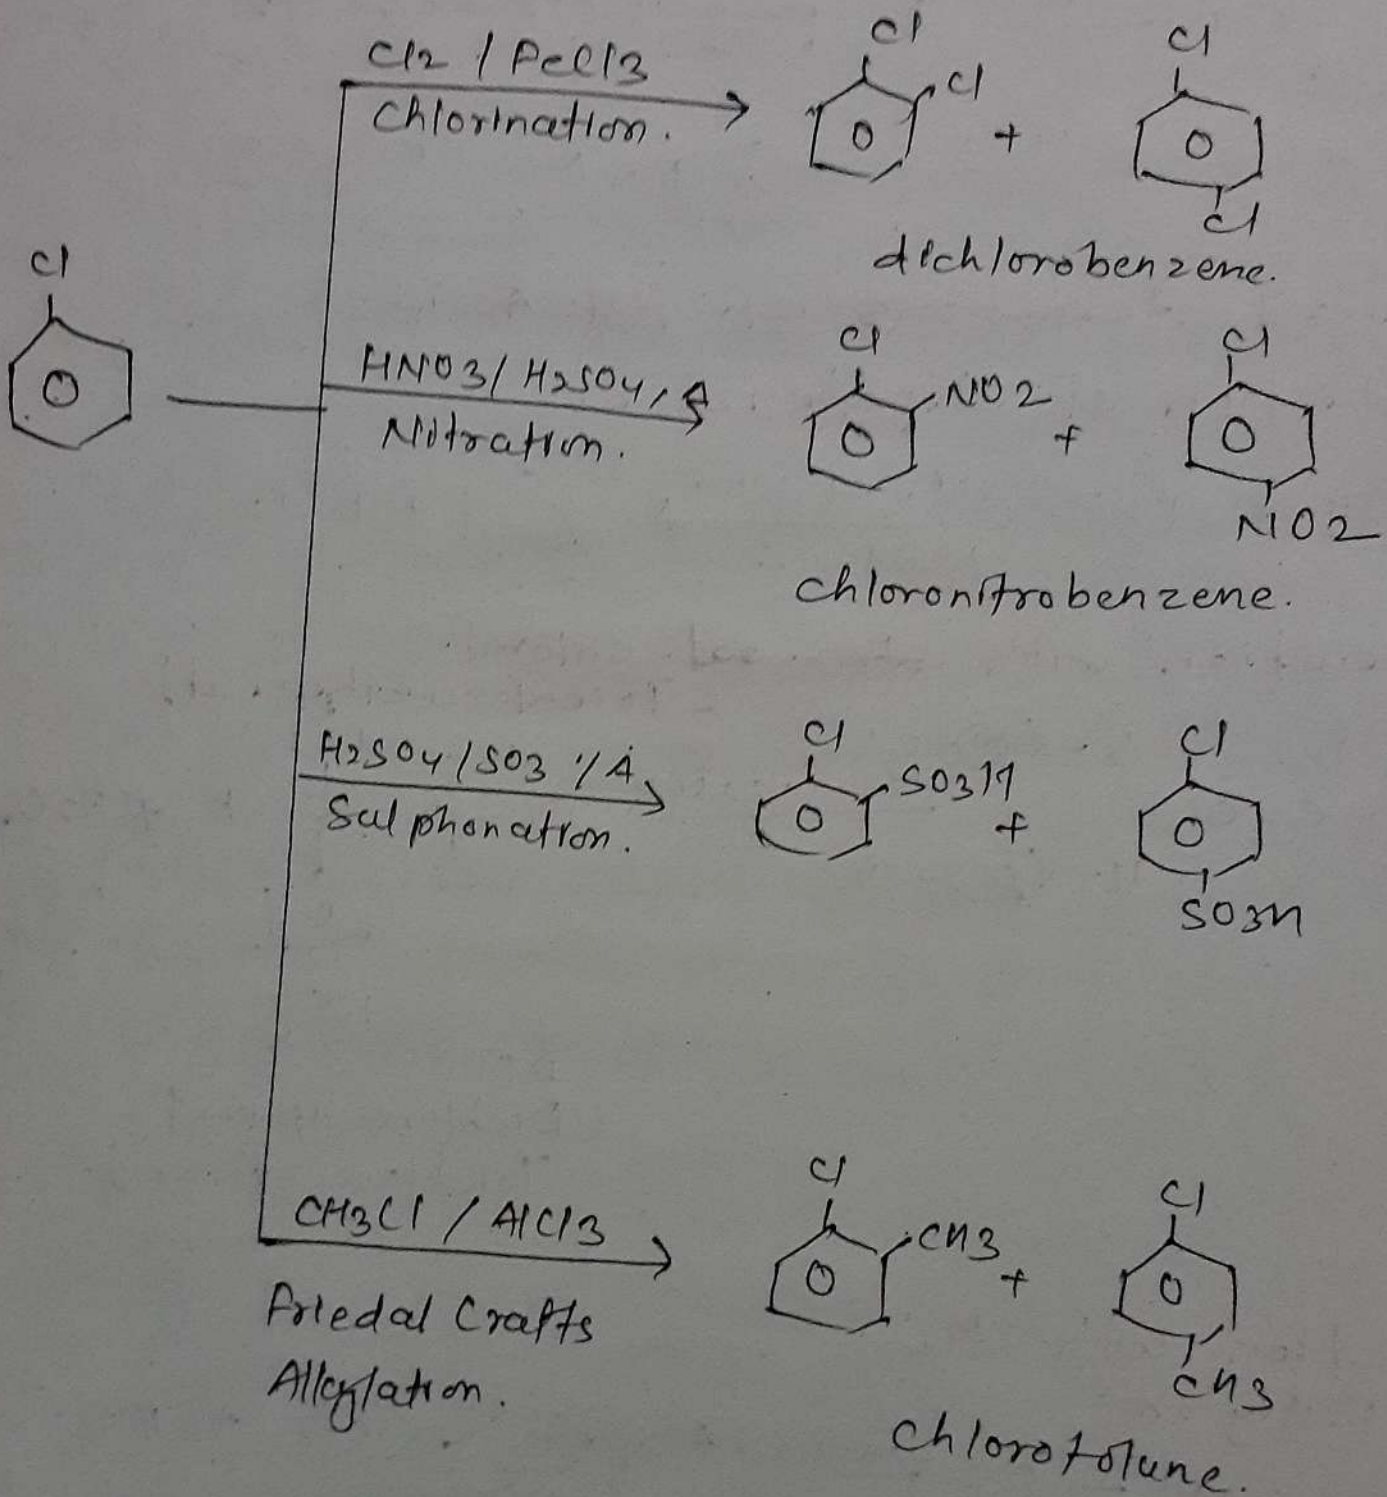 Cl
Cl2 / FeCl3
Chlorination.
Cl
Cl
+
Cl
Cl
dichlorobenzene.
HNO3 / H2SO4, Δ
Nitration.
Cl
NO2
+
Cl
NO2
chloronitrobenzene.
H2SO4 / SO3 / Δ
Sulphonation.
Cl
SO3H
+
Cl
SO3H
CH3Cl / AlCl3
Friedal Crafts
Alkylation.
Cl
CH3
+
Cl
CH3
chlorotolune.